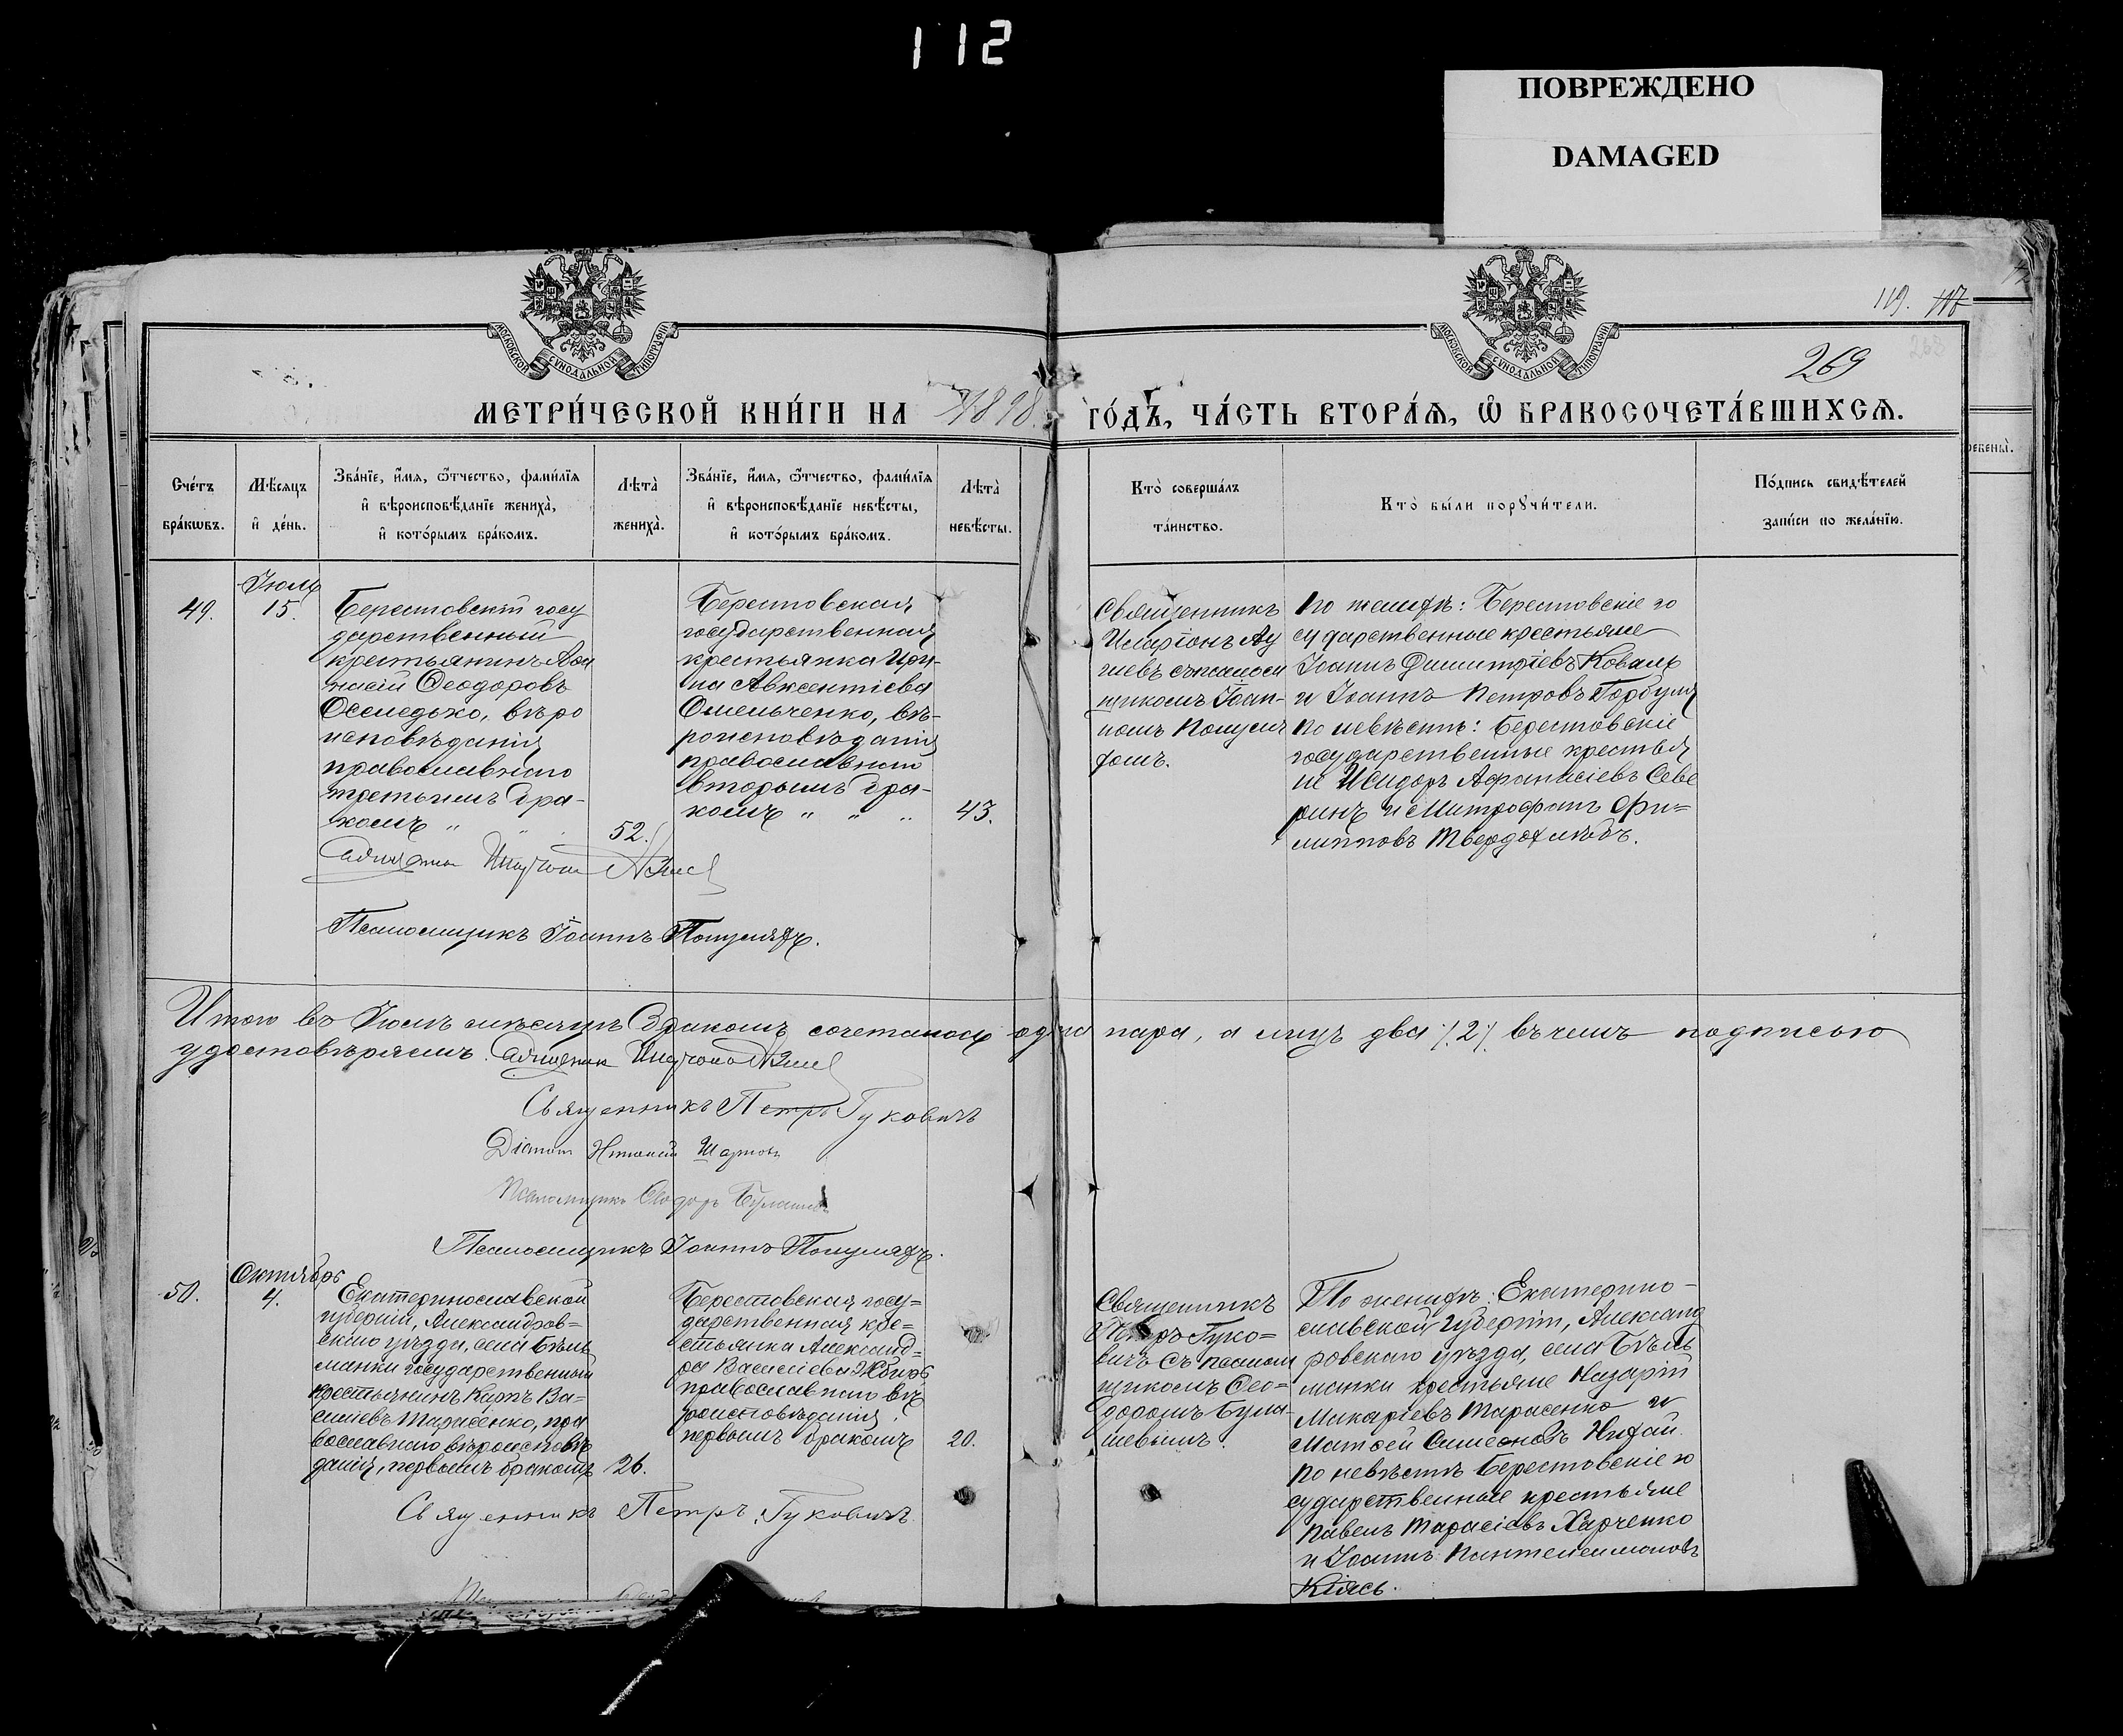 112
ПОВРЕЖДЕНО
DAMAGED
МОСКОВСКОЙ СѴНОДАЛЬНОЙ ТИПОГРАФІИ
МОСКОВСКОЙ СѴНОДАЛЬНОЙ ТИПОГРАФІИ
119. 117
269
МЕТРИ́ЧЕСКОЙ КНИ́ГИ НА 1898 ГО́ДЪ, ЧА́СТЬ ВТОРА́Ѧ, Ѡ҆ БРАКОСОЧЕТА́ВШИХСѦ.
Сче́тъ
бра́кѡвъ.
Мѣ́сѧцъ
и҆ де́нь.
Зва́нїе, и҆́мѧ, ѻ҆́тчество, фами́лїѧ
и҆ вѣроисповѣ́данїе жениха̀,
и҆ кото́рымъ бра́комъ.
Лѣ́та
жениха̀.
Зва́нїе, и҆́мѧ, ѻ҆́тчество, фами́лїѧ
и҆ вѣроисповѣ́данїе невѣ́сты,
и҆ кото́рымъ бра́комъ.
Лѣ́та
невѣ́сты.
Кто̀ соверша́лъ
та́инство.
Кто̀ бы́ли порꙋчи́тели.
По́дпись свидѣ́телей
за́писи по жела́нїю.
49.
Іюль
15.
Берестовскій госу
дарственный
крестьянинъ Афа
насій Ѳеодоровъ
Оселедько, вѣро
исповѣданія
православнаго
третьимъ бра-
комъ " "
52.
Берестовская
государственная
крестьянка Ири-
на Авксентіева
Омельченко, вѣ-
роисповѣданія
православнаго
вторымъ бра-
комъ " " "
43.
Священникъ
Иларіонъ
съ псалом
щикомъ Іоан-
номъ
По женихѣ: Берестовскіе го
сударственные крестьяне
Іоаннъ Димитріевъ Коваль
и Іоаннъ Петровъ Горбуля
по невѣстѣ: Берестовскіе
государственные крестья
не Исидоръ Афанасіевъ Севе
ринъ и Митрофанъ Фи=
липповъ Твердохлѣбъ.
Псаломщикъ Іоаннъ
Итого въ Іюлѣ мѣсяцѣ бракомъ сочеталось одна пара, а лицъ два /2/ въ чемъ подписью
удостовѣряемъ.
Священникъ Петръ Гуковичъ
Діаконъ
Псаломщикъ Ѳеодоръ
Псаломщикъ Іоаннъ
50.
Октябрь
4.
Екатеринославской
губерніи, Александров=
скаго уѣзда, села Бѣль
манки государственный
крестьянинъ Карпъ Ва=
силіевъ Тарасенко, пра
вославнаго вѣроисповѣ
данія, первымъ бракомъ
26.
Берестовская госу=
дарственная кре=
стьянка Александ=
ра Василіева
православнаго вѣ
роисповѣданія,
первымъ бракомъ
20.
Священникъ
Петръ Гуко=
вичъ съ псалом
щикомъ Ѳео=
доромъ
По женихѣ: Екатерино-
славской губерніи, Александ
ровскаго уѣзда, села Бѣль
манки крестьяне Назарій
Макаріевъ Тарасенко и
Матѳей Симеоновъ
по невѣстѣ Берестовскіе го
сударственные крестьяне
Павелъ Тарасіевъ Харченко
и Іоаннъ Пантелеимоновъ
Кіясь.
Священникъ Петръ Гуковичъ